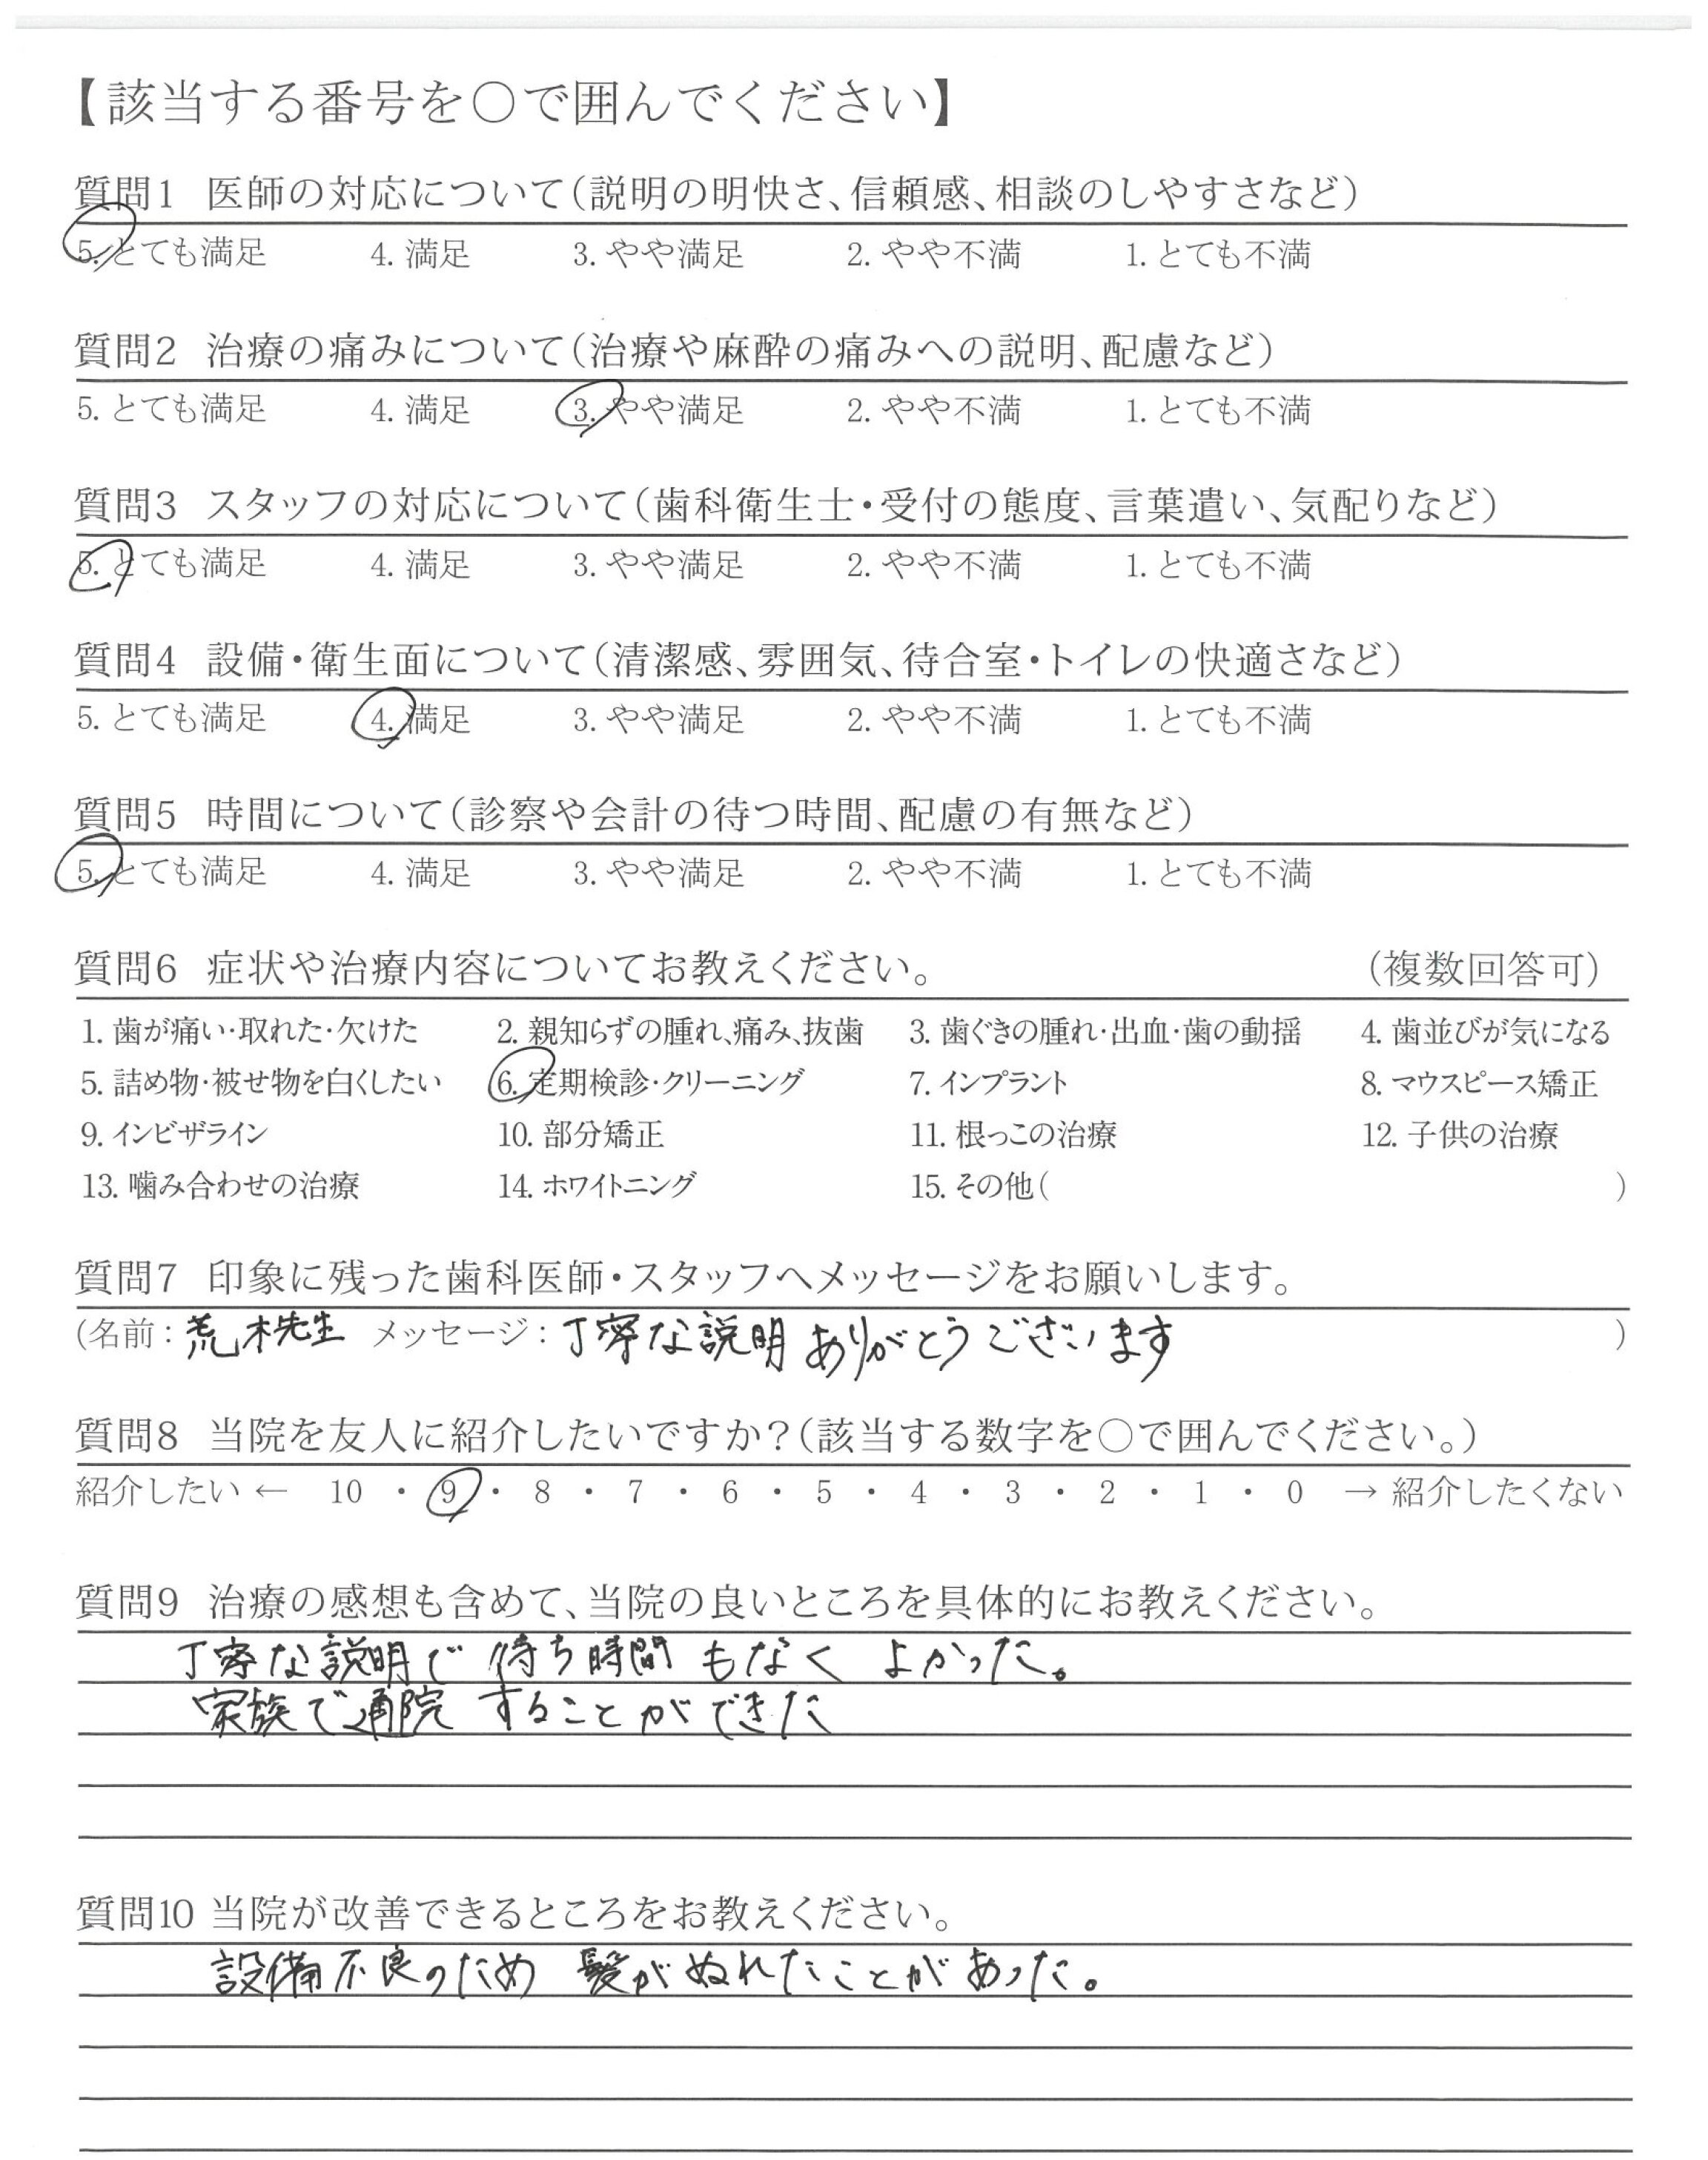 【該当する番号を○で囲んでください】
質問1 医師の対応について(説明の明快さ、信頼感、相談のしやすさなど)
5. とても満足 4. 満足 3. やや満足 2. やや不満 1. とても不満
質問2 治療の痛みについて(治療や麻酔の痛みへの説明、配慮など)
5. とても満足 4. 満足 3. やや満足 2. やや不満 1. とても不満
質問3 スタッフの対応について(歯科衛生士・受付の態度、言葉遣い、気配りなど)
5. とても満足 4. 満足 3. やや満足 2. やや不満 1. とても不満
質問4 設備・衛生面について(清潔感、雰囲気、待合室・トイレの快適さなど)
5. とても満足 4. 満足 3. やや満足 2. やや不満 1. とても不満
質問5 時間について(診察や会計の待つ時間、配慮の有無など)
5. とても満足 4. 満足 3. やや満足 2. やや不満 1. とても不満
質問6 症状や治療内容についてお教えください。 (複数回答可)
1. 歯が痛い・取れた・欠けた 2. 親知らずの腫れ、痛み、抜歯 3. 歯ぐきの腫れ・出血・歯の動揺 4. 歯並びが気になる
5. 詰め物・被せ物を白くしたい 6. 定期検診・クリーニング 7. インプラント 8. マウスピース矯正
9. インビザライン 10. 部分矯正 11. 根っこの治療 12. 子供の治療
13. 噛み合わせの治療 14. ホワイトニング 15. その他( )
質問7 印象に残った歯科医師・スタッフへメッセージをお願いします。
(名前 : 荒木先生 メッセージ : 丁寧な説明ありがとうございます )
質問8 当院を友人に紹介したいですか?(該当する数字を○で囲んでください。)
紹介したい ← 10 ・ 9 ・ 8 ・ 7 ・ 6 ・ 5 ・ 4 ・ 3 ・ 2 ・ 1 ・ 0 → 紹介したくない
質問9 治療の感想も含めて、当院の良いところを具体的にお教えください。
丁寧な説明で 待ち時間もなく よかった。
家族で通院 することができた
質問10 当院が改善できるところをお教えください。
設備不良のため 髪がぬれたことがあった。